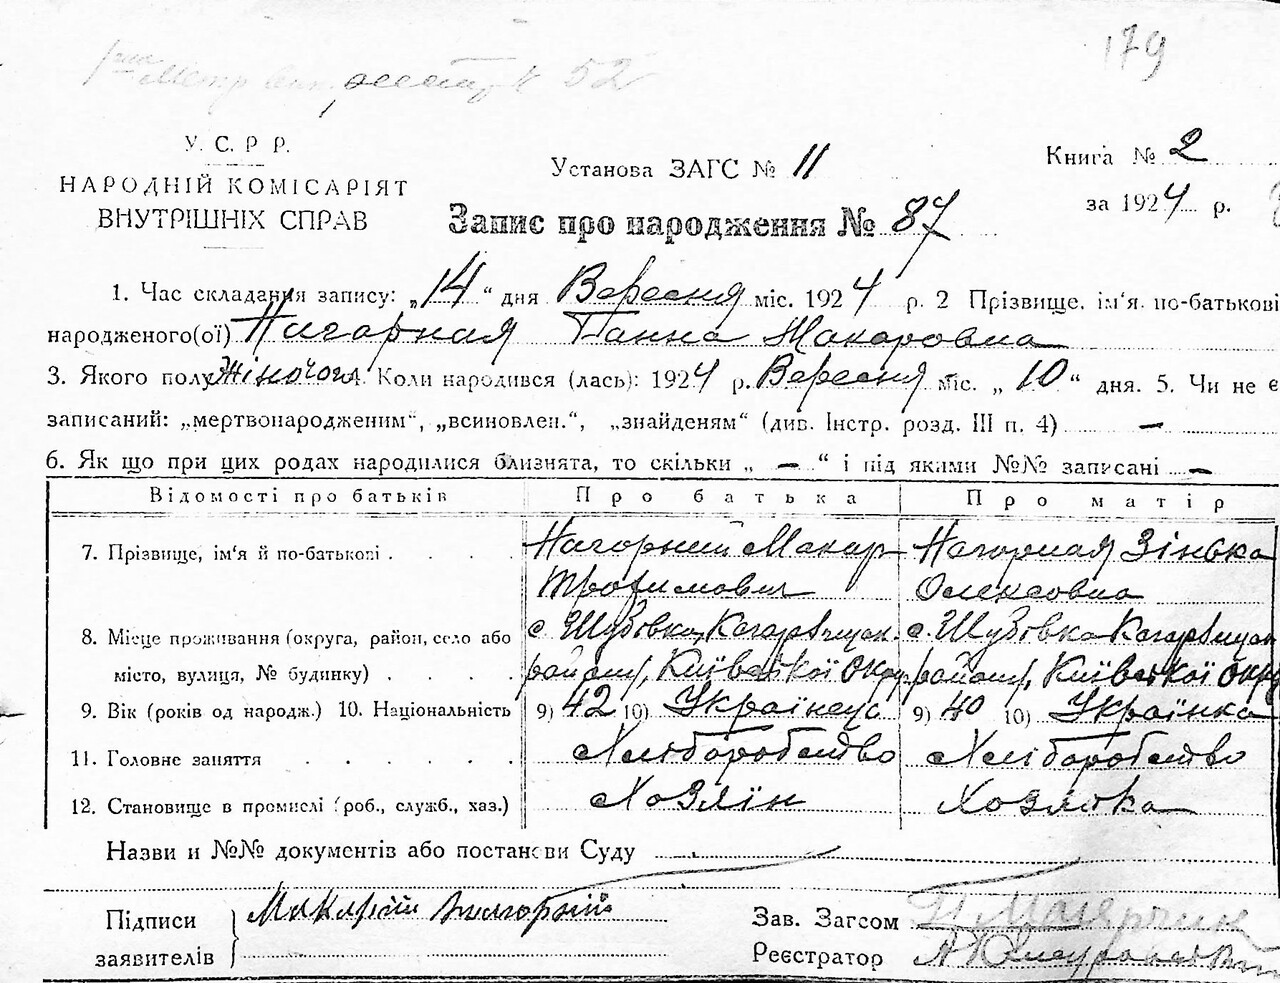 179
52
У. С. Р Р.
НАРОДНІЙ КОМІСАРІЯТ
ВНУТРІШНІХ СПРАВ
Установа ЗАГС № 11
Книга № 2
за 1924 р.
Запис про народження № 87
1. Час складання запису: „14“ дня Вересня міс. 1924 р. 2 Прізвище. ім'я. по-батькові
народженого(ої) Нагорная Ганна Макаровна
3. Якого полу Жіночого 4. Коли народився (лась): 1924 р. Вересня міс. „10“ дня. 5. Чи не є
записаний: „мертвонародженим“, „всиновлен.“, „знайденям“ (див. Інстр. розд. III п. 4) —
6. Як що при цих родах народилися близнята, то скільки „ — “ і під якими №№ записані —
Відомості про батьків Про батька Про матір
7. Прізвище, ім'я й по-батькові . . . . Нагорний Макар Нагорная Зінька
Трофимович Олексовна
8. Місце проживання (округа, район, село або с. Шубовка Кагарлицьк. с. Шубовка Кагарлицьк
місто, вулиця, № будинку) . . . . району, Київської Окр району, Київської Окр
9. Вік (років од народж.) 10. Національність 9) 42 10) Українець 9) 40 10) Українка
11. Головне заняття . . . . . . Хліборобство Хліборобство
12. Становище в промислі (роб., служб., хаз.) Хозяін Хозяйка
Назви и №№ документів або постанови Суду —
Підписи
заявителів
Макарій Нагорній
Зав. Загсом
Реєстратор